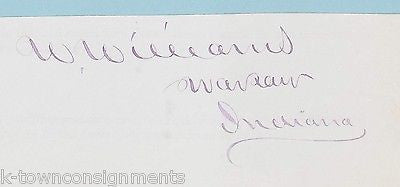 W. Williams
Warsaw
Indiana
k-townconsignments